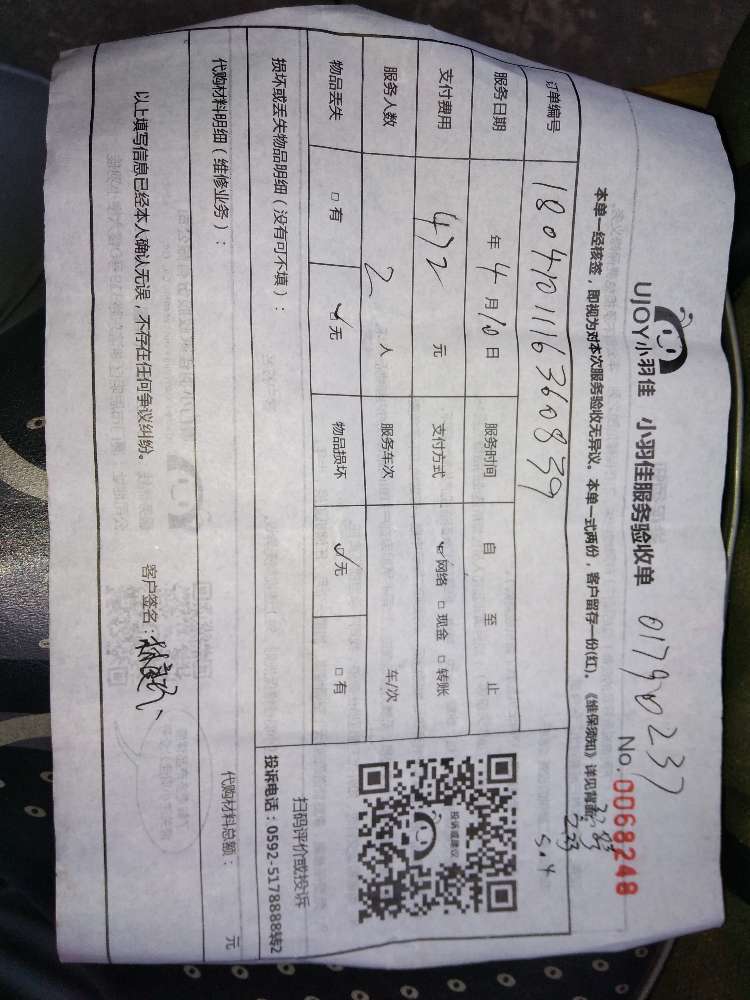 UJOY小羽佳 小羽佳服务验收单 01790237
No.0068248
本单一经核签，即视为对本次服务验收无异议。本单一式两份，客户留存一份(红)。《维保须知》详见背面
订单编号 1804101116360839
服务日期 年 4 月 10 日 服务时间 自 至 止
支付费用 472 元 支付方式 ☑网络 □现金 □转账
服务人数 2 人 服务车次 车/次
物品丢失 □有 ☑无 物品损坏 ☑无 □有
损坏或丢失物品明细（没有可不填）：
投诉或建议
扫码评价或投诉
投诉电话：0592-5178888转2
代购材料明细（维修业务）： 代购材料总额： 元
以上填写信息已经本人确认无误，不存在任何争议纠纷。 客户签名：